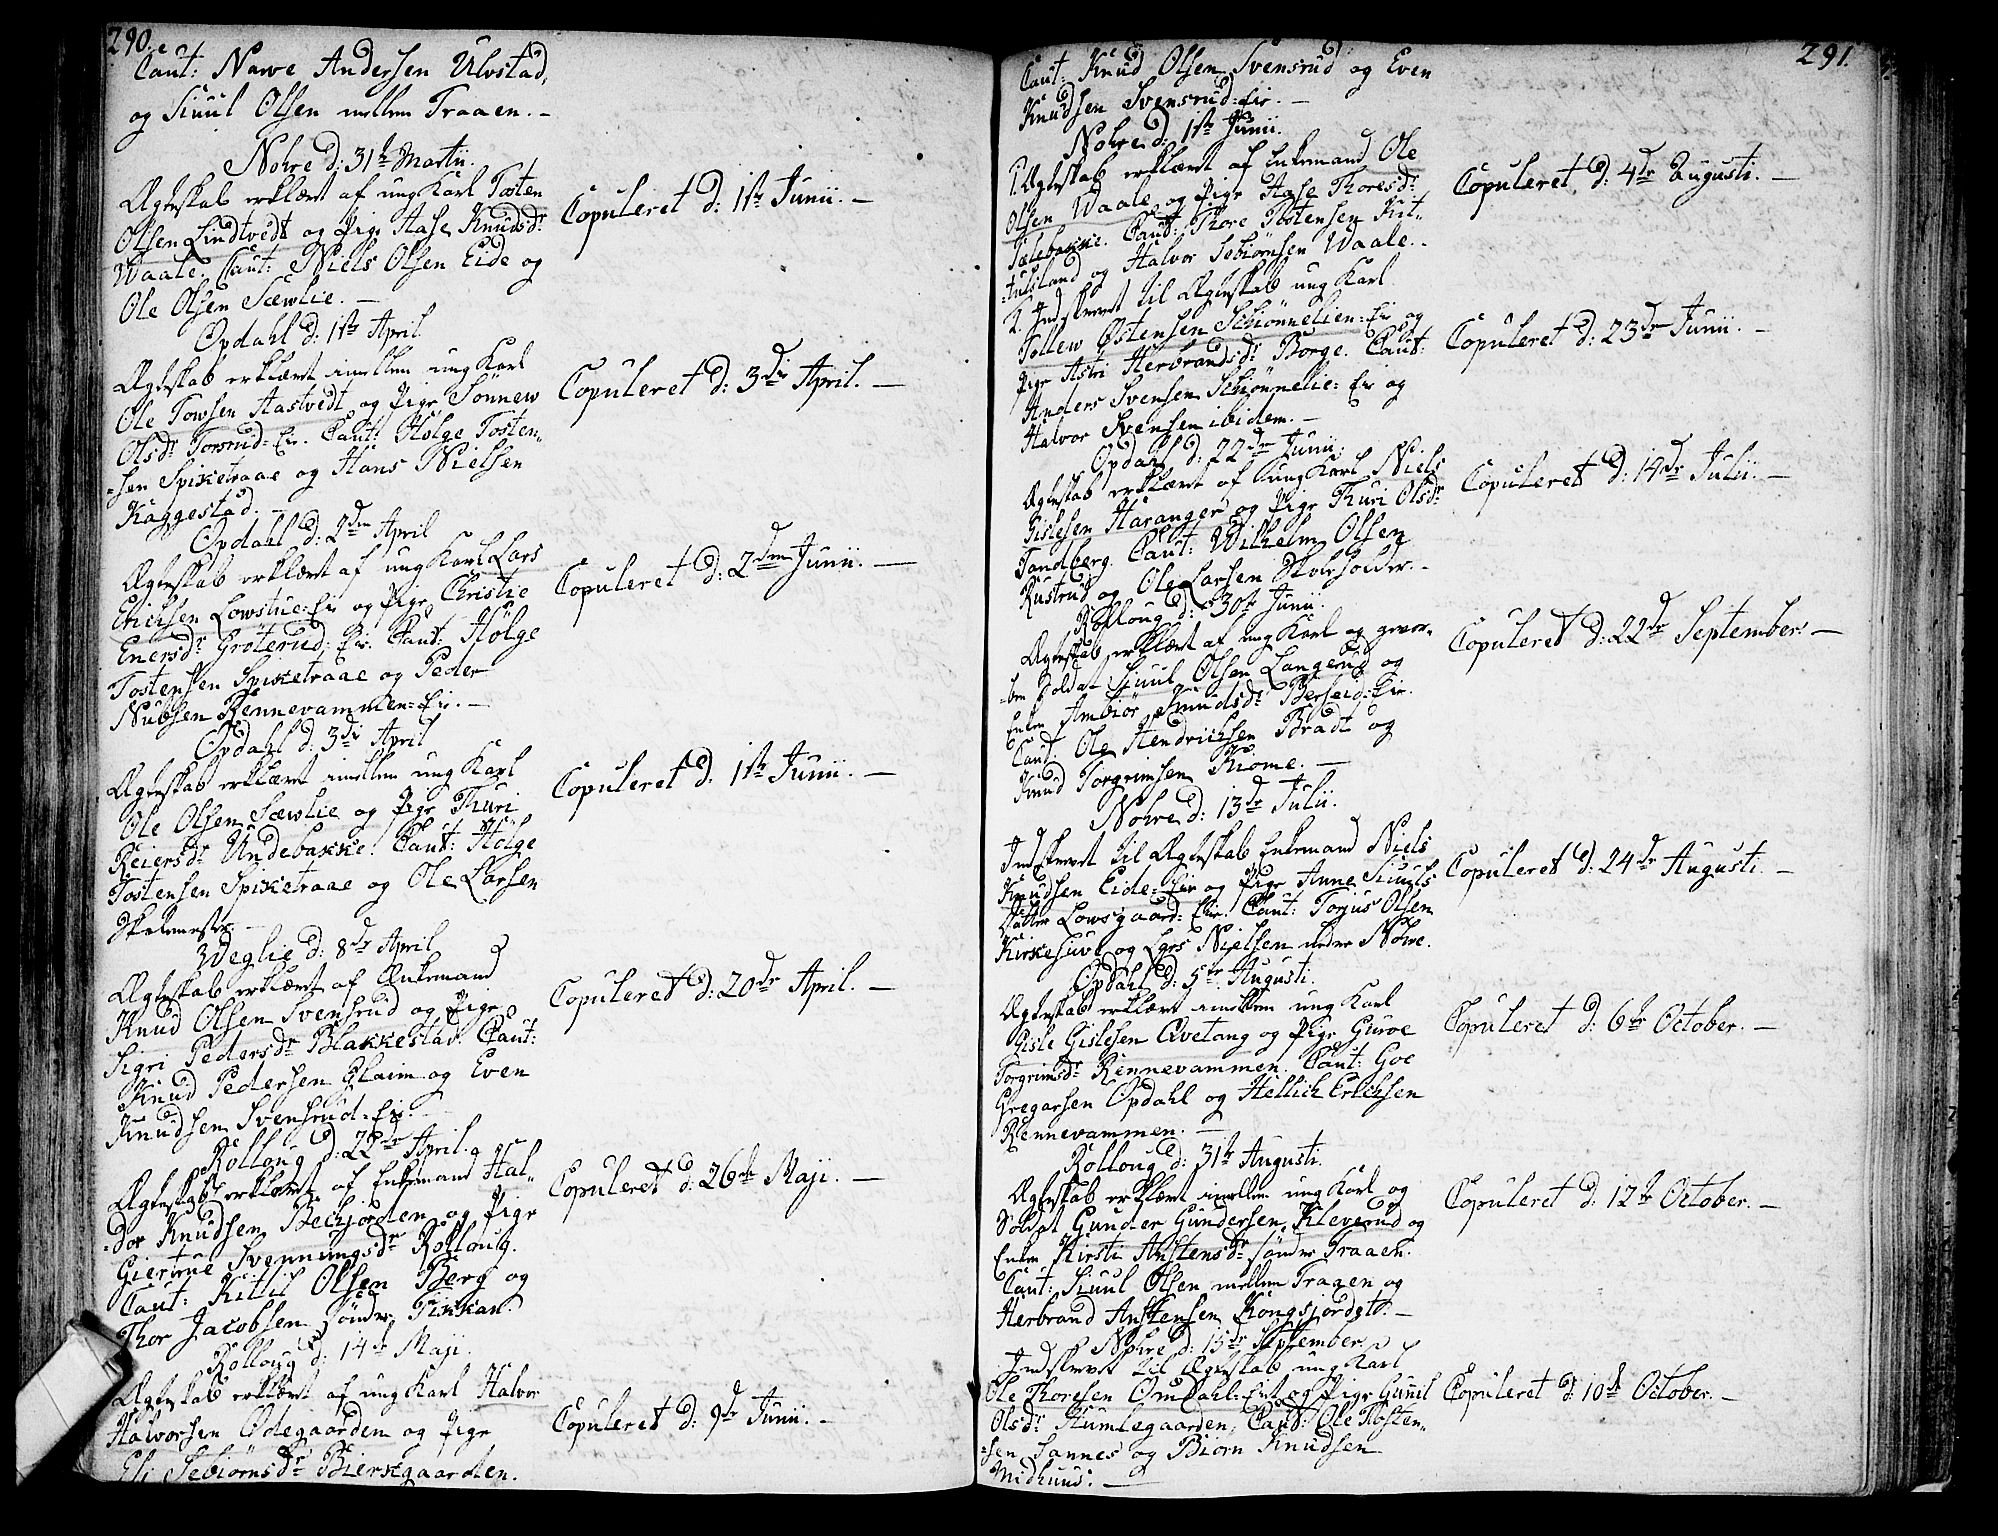 290.
Caut: Nawe Andersen Ulvstad,
og Siuul Olsen mellem Traaen. –
Nohre d: 31te Martii.
Ægteskab erklært af ung Karl Tosten
Olsen Lindtvedt og Pige Aase Knudsdr
Waale. Caut: Niels Olsen Eide og
Ole Olsen Sæwlie. –
Copuleret d: 1ste Junii. –
Opdahl d: 1ste April
Ægteskab erklært imellem ung Karl
Ole Towsen Aastvedt og Pige Sönnew
Olsdr Torsrud-Eie. Caut: Holge Tosten-
-sen Spiketraae og Hans Nielsen
Kaggestad. –
Copuleret d: 3die April. –
Opdahl d: 2den April
Ægteskab erklært af ung Karl Lars
Erichsen Lowstue-Eie og Pige Christie
Enersdr Groterud-Eie. Caut: Holge
Tostensen Spiketraae og Peder
Nubsen Rennevammen-Eie. –
Copuleret d: 2den Junii. –
Opdahl d: 3die April
Ægteskab erklært imellem ung Karl
Ole Olsen Sæwlie og Pige Thuri
Reiersdr Undebakke. Caut: Holge
Tostensen Spiketraae og Ole Larsen
Skolemester. –
Copuleret d: 1ste Junii. –
Weglie d: 8de April
Ægteskab erklært af Enkemand
Knud Olsen Svensrud og Pige
Sigri Pedersdr Blakkestad. Caut:
Knud Pedersen Glaim og Even
Knudsen Svensrud-Eie. –
Copuleret d: 20de April. –
Rolloug d: 22de April.
Ægteskab erklært af Enkemand Hal-
-dor Knudsen Bechjorden og Pige
Giertrue Svennungsdr Rolloug.
Caut: Kittil Olsen Berg og
Thor Jacobsen söndre Fikkan.
Copuleret d: 26de Maji. –
Rolloug d: 14de Maji.
Ægteskab erklært af ung Karl Halvor
Halvorsen Ödegaarden og Pige
Eli Sebiörnsdr Bierkgaarden.
Copuleret d: 9de Junii. –
291.
Caut: Knud Olsen Svensrud og Even
Knudsen Svensrud-Eie. –
Nohre d: 1ste Junii.
1. Ægteskab erklært af Enkemand Ole
Olsen Waale og Pige Aase Thoresdr
Tælebakke. Caut: Thore Tostensen Kit-
-tilsland og Halvor Sebiörnsen Waale. –
Copuleret d: 4de Augusti. –
2. Indskrevet til Ægteskab ung Karl
Tollew Östensen Schiönnelien-Eie og
Pige Astri Herbrandsdr Borge. Caut:
Anders Svensen Schiönnelie-Eie og
Halvor Svensen ibidem. –
Copuleret d: 23de Junii. –
Opdahl d: 22de Junii.
Ægteskab erklært af ung Karl Niels
Gislesen Haranger og Pige Thuri Olsdr
Tandberg. Caut: Wilhelm Olsen
Rustrud og Ole Larsen Skoleholder. –
Copuleret d: 14de Julii. –
Rolloug d: 30te Junii.
Ægteskab erklært af ung Karl og gevor-
-ben Soldat Siuul Olsen Langerud og
Enke Ambiör Knudsdr Berseid-Eie.
Caut: Ole Hendrichsen Bradt og
Knud Torgrimsen Thome. –
Copuleret d: 22de September. –
Nohre d: 13de Julii.
Indskrevet til Ægteskab Enkemand Niels
Knudsen Eide-Eie og Pige Anne Siuuls-
datter Lowsgaard-Eie. Caut: Torjus Olsen
Kirkesuvl og Lars Nielsen nedre Nohre.
Copuleret d: 24de Augusti. –
Opdahl d: 5te Augusti.
Ægteskab erklært imellem ung Karl
Gisle Gislesen Qvetang og Pige Guroe
Torgrimsdr Rennevammen. Caut: Goe
Gregarsen Opdahl og Hellich Erichsen
Rennevammen. –
Copuleret d: 6te October. –
Rolloug d: 31te Augusti.
Ægteskab erklært imellem ung Karl og
Soldat Gunder Gundersen Kleverud og
Enke Kirsti Anstensdr söndre Traaen.
Caut: Siuul Olsen mellem Traaen og
Herbrand Anstensen Kongsjordet. –
Copuleret d: 12te October. –
Nohre d: 15de September.
Indskrevet til Ægteskab ung Karl
Ole Thoresen Omdahl-Eie og Pige Gunil
Olsdr Humlegaarden, Caut: Ole Tosten-
-sen Sannes og Biorn Knudsen
Midhuus. –
Copuleret d: 10de October. –